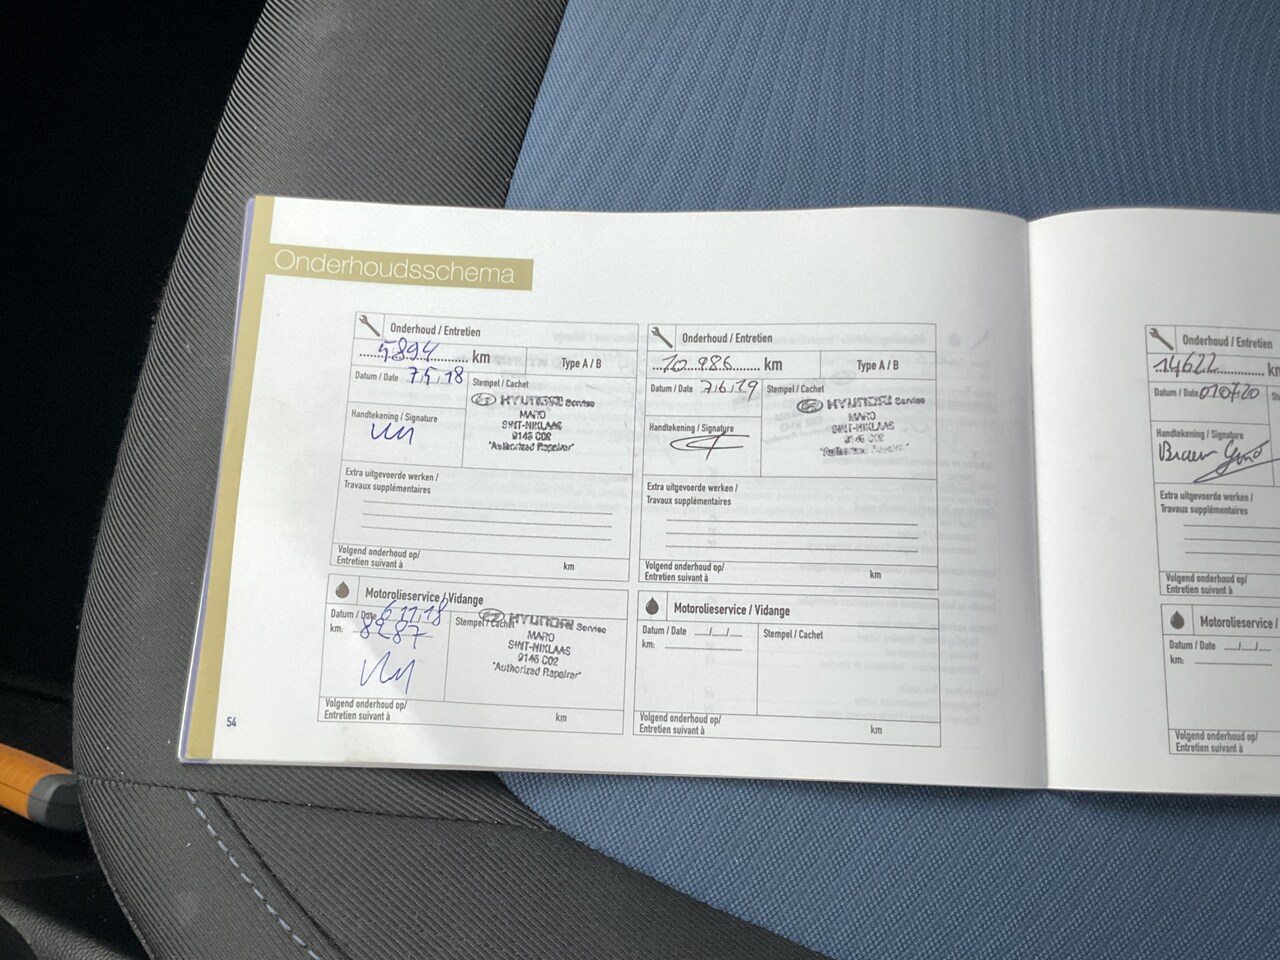 Onderhoudsschema
Onderhoud / Entretien
5894 km
Type A / B
Datum / Date 7.5.18
Stempel / Cachet
HYUNDAI Service
MARO
SINT-NIKLAAS
9145 C02
"Authorized Repairer"
Handtekening / Signature
Extra uitgevoerde werken /
Travaux supplémentaires
Volgend onderhoud op/
Entretien suivant à km
Motorolieservice / Vidange
Datum / Date 6.11.18
km: 8287
Stempel / Cachet
HYUNDAI Service
MARO
SINT-NIKLAAS
9145 C02
"Authorized Repairer"
Volgend onderhoud op/
Entretien suivant à km
54
Onderhoud / Entretien
10.986 km
Type A / B
Datum / Date 7.6.19
Stempel / Cachet
HYUNDAI Service
MARO
SINT-NIKLAAS
9145 C02
"Authorized Repairer"
Handtekening / Signature
Extra uitgevoerde werken /
Travaux supplémentaires
Volgend onderhoud op/
Entretien suivant à km
Motorolieservice / Vidange
Datum / Date
km:
Stempel / Cachet
Volgend onderhoud op/
Entretien suivant à km
Onderhoud / Entretien
14622 km
Datum / Date 010720
Handtekening / Signature
Extra uitgevoerde werken /
Travaux supplémentaires
Volgend onderhoud op/
Entretien suivant à
Motorolieservice /
Datum / Date
km:
Volgend onderhoud op/
Entretien suivant à